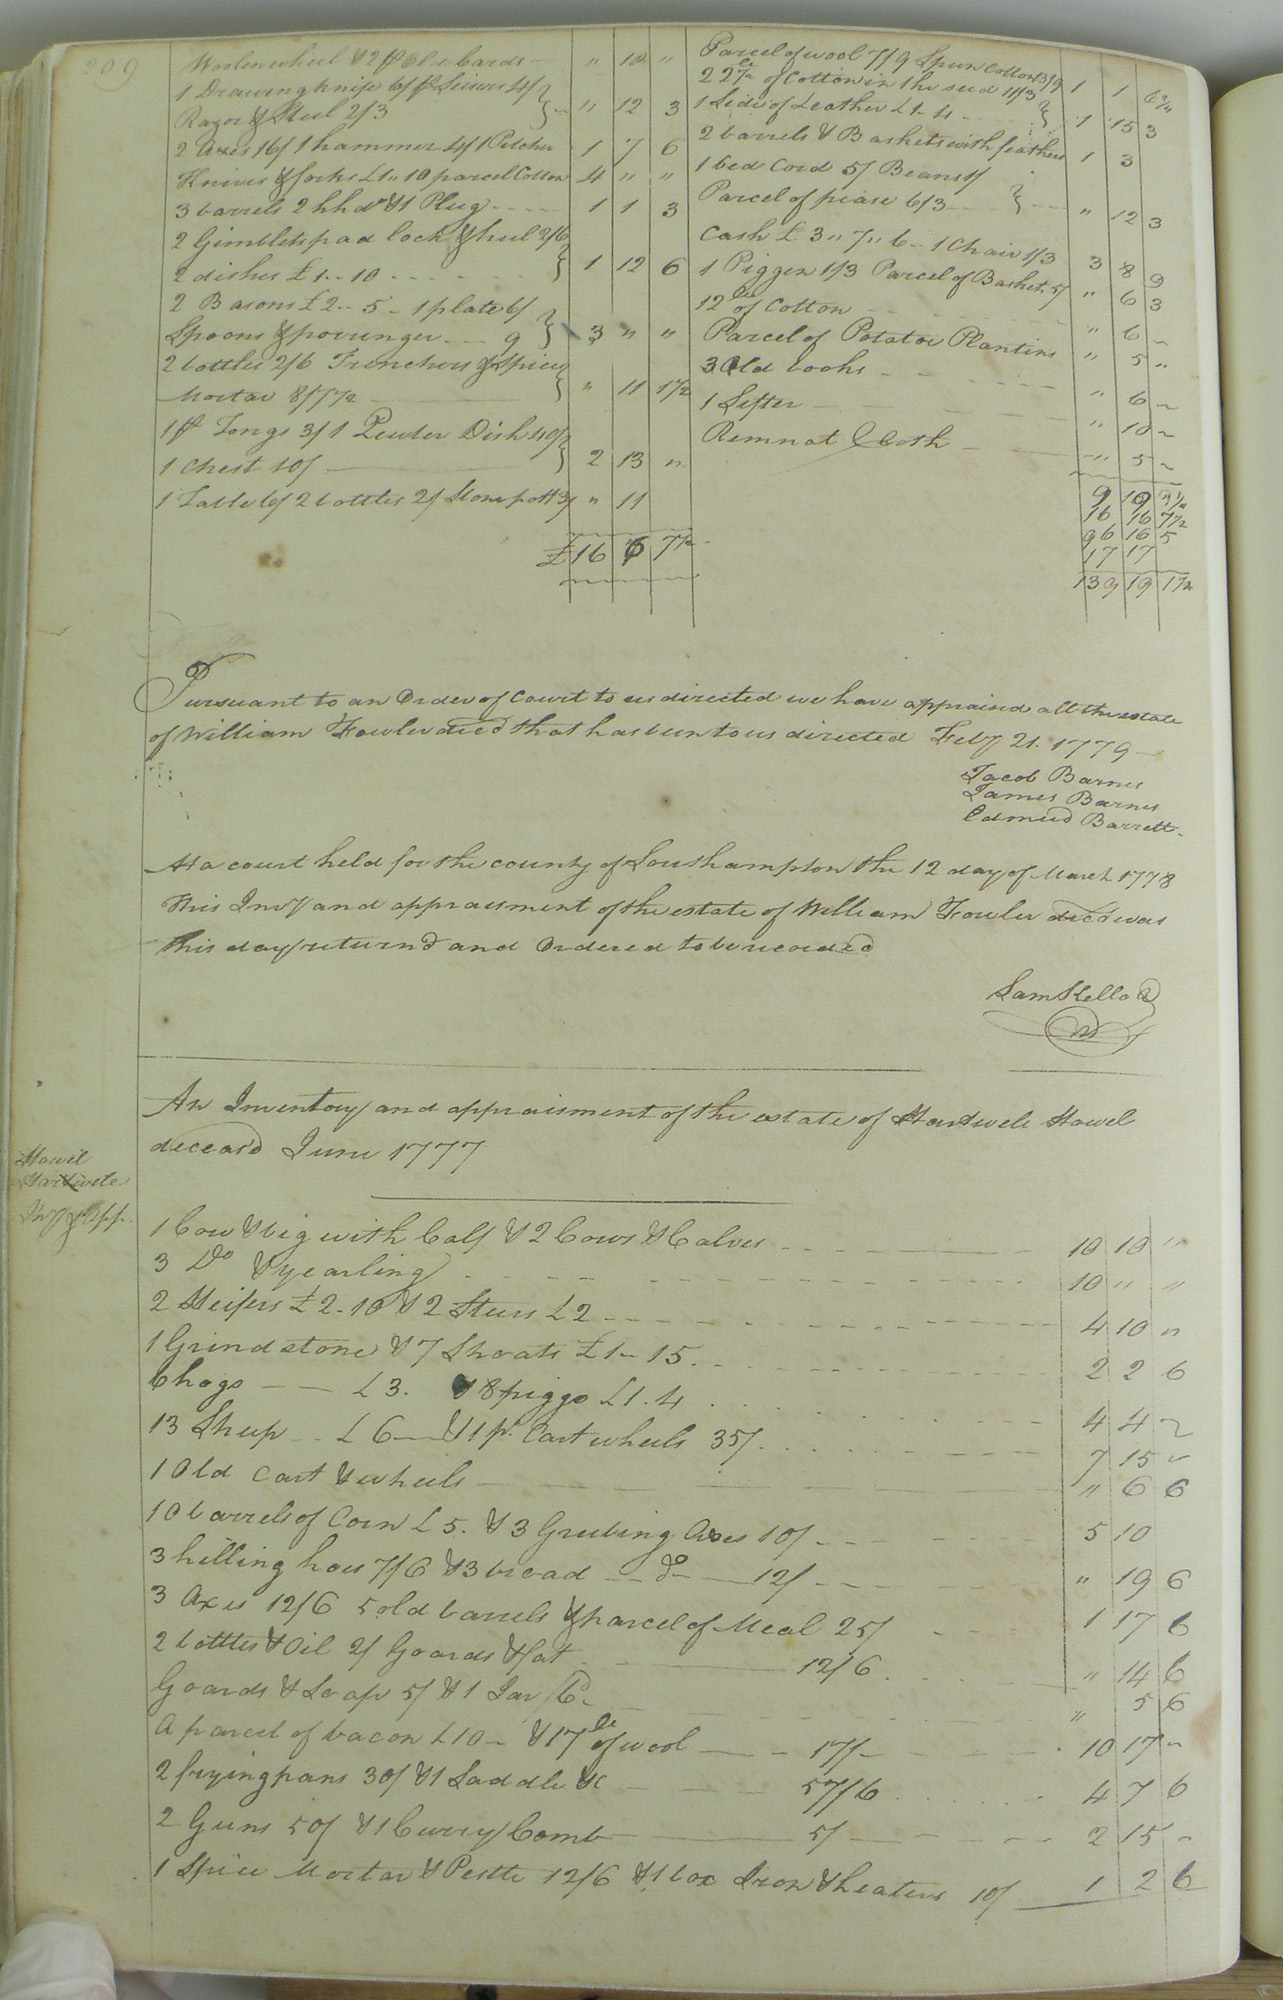 209
Woolen wheel & 2 pr Old Cards - " 10 "
1 Drawing knife 6/ pr Scissors 4/
Razor & Steel 2/3 - " 12 3
2 Axes 16/ 1 hammer 4/ 1 Pitcher 1 7 6
Knives & forks £1 " 10 parcel Cotton 4 " "
3 barrels 2 hhds & 1 Plug - - - 1 1 3
2 Gimblets pad lock & 2/6
2 dishes £1 - 10 - - - 1 12 6
2 Basons £2 - 5 - 1 plate 6/
Spoons & porringer - - 9 3 " "
2 bottles 2/6 Trenchers & Spice
Mortar 8/7½ " 11 1½
1 pr Tongs 3/ 1 Pewter Dish 40/
1 Chest 10/ 2 13 "
1 Table 6/ 2 bottles 2/ Stone pott 3/ " 11
£16 6 7½
Parcel of wool 7/9 Spun Cotton 1 1
22 ½ of Cotton in the seed 11/3
1 Side of Leather £1 - 4 - 1 15 3
2 barrels & Baskets with feathers 1 3
1 bed Cord 5/ Beans 1/
Parcel of pease 6/3 " 12 3
Cash £ 3 " 7 " 6 - 1 Chair 1/3 3 8 9
1 Piggen 1/3 Parcel of Baskets 5/ " 6 3
12 lb of Cotton " 6 -
Parcel of Potatoe Plantins " 5 "
3 Old books - - - " 6 -
1 Sifter " 10 -
Remnat Cloth " 5 -
9 19
16 16 7½
96 16 5
17 17
139 19 1½
Pursuant to an Order of Court to us directed we have appraisd all the estate
of William Fowler decd that has been to us directed Feby 21. 1779 -
Jacob Barnes
James Barnes
Edmund Barrett -
At a court held for the county of Southampton the 12 day of March 1778
This Invy and appraisment of the estate of William Fowler decd was
this day returnd and Ordered to be recorded
Sam Kello
An Inventory and appraisment of the estate of Hartwell Howel
deceasd June 1777
Howel
Hartwell
Invy & App.
1 Cow & big with Calf & 2 Cows & Calves - - - 10 10 "
3 Do & yearling - - - 10 " "
2 Heifers £2 - 10 & 2 Steers £2 - - - 4 10 "
1 Grindstone & 7 Shoats £1 - 15 - - - 2 2 6
6 hogs - £3. & 8 piggs £1. 4 - - - 4 4 -
13 Sheep - £6 - & 1 pr. Cart wheels 35/ - - - 7 15 -
1 Old Cart & wheels " 6 6
10 barrels of Corn £5. & 3 Grubing Axes 10/ - - - 5 10
3 hilling hoes 7/6 & 3 broad - do - 12/ - - - " 19 6
3 Axes 12/6 5 old barrels & parcel of Meal 25/ - - - 1 17 6
2 bottles & Oil 2/ Goards & fat 12/6 - - - " 14 6
Goards & Soap 5/ & 1 Jar 6d - - - " 5 6
A parcel of bacon £10 - & 17 lb of wool - 17/ - - - 10 17 -
2 frying pans 30/ & 1 Saddle &c 57/6 - - - 4 7 6
2 Guns 50/ & 1 Curry Comb 5/ - - - 2 15 -
1 Spice Mortar & Pestle 12/6 & 1 box Iron & heaters 10/ 1 2 6